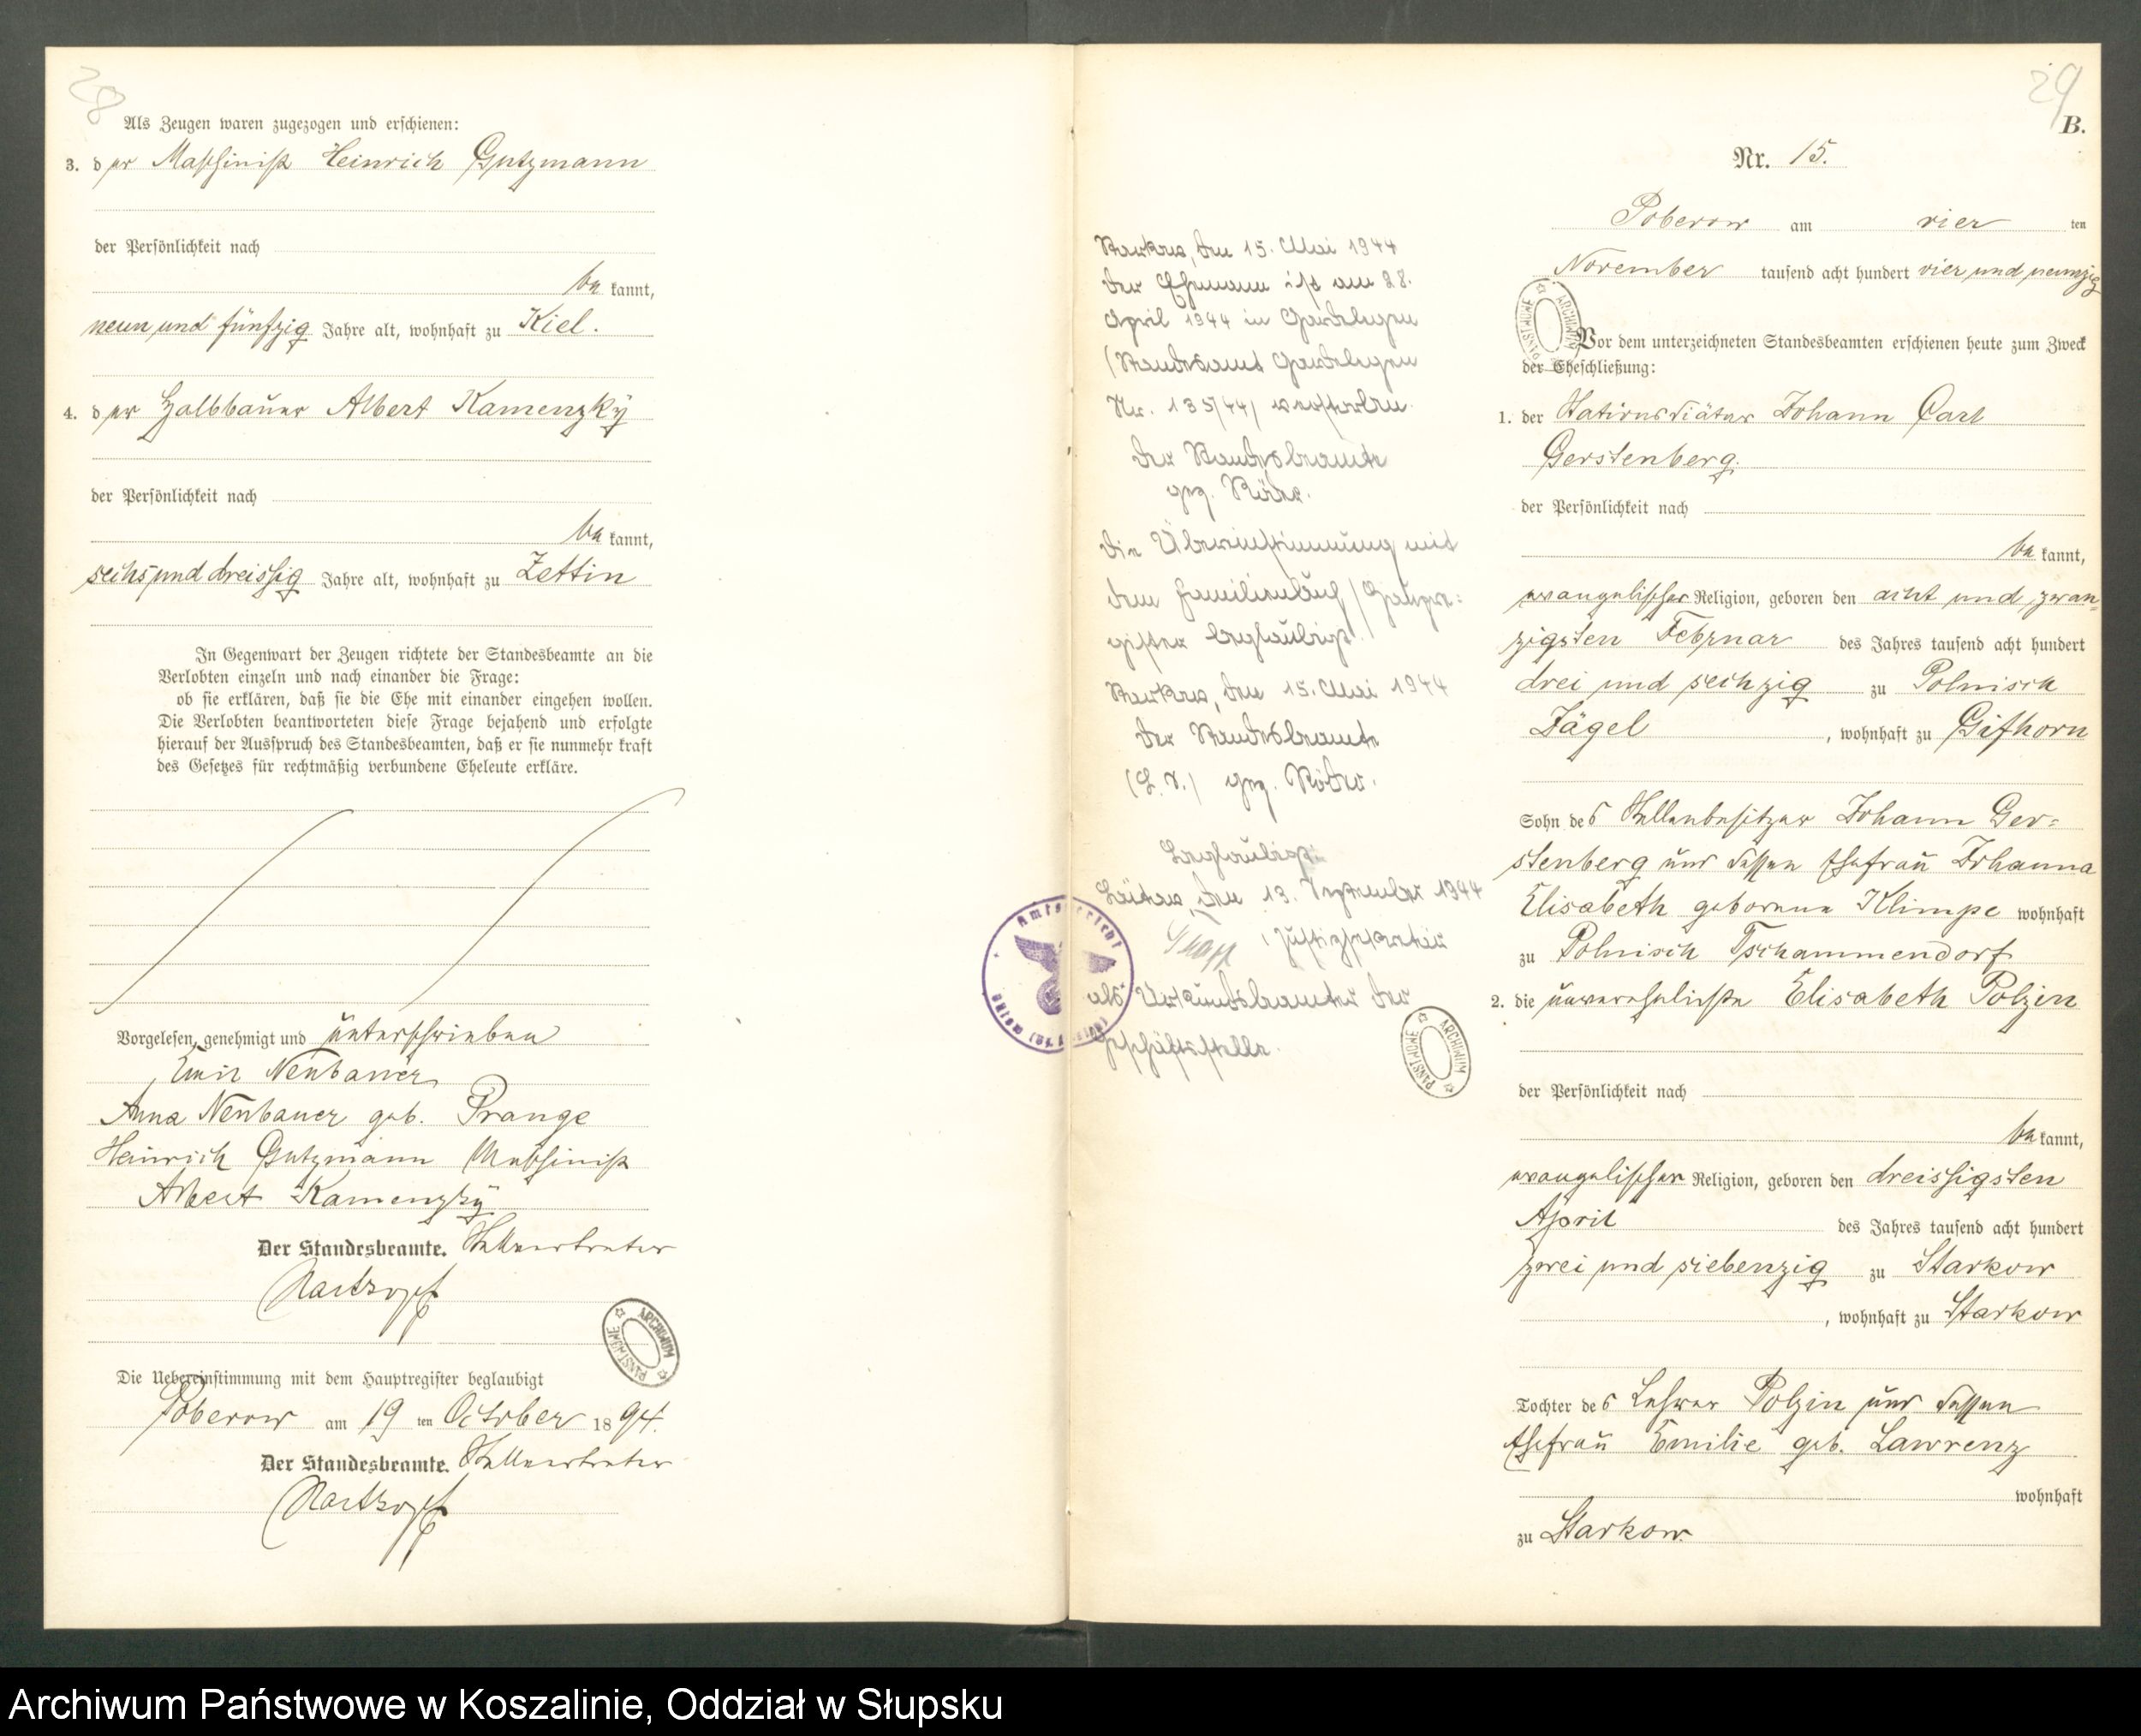 28
Als Zeugen waren zugezogen und erschienen:
3. der Maschinist Heinrich Gutzmann
der Persönlichkeit nach
bekannt,
neun und fünfzig Jahre alt, wohnhaft zu Kiel.
4. der Halbbauer Albert Kamenzky
der Persönlichkeit nach
bekannt,
sechs und dreissig Jahre alt, wohnhaft zu Zettin
In Gegenwart der Zeugen richtete der Standesbeamte an die
Verlobten einzeln und nach einander die Frage:
ob sie erklären, daß sie die Ehe mit einander eingehen wollen.
Die Verlobten beantworteten diese Frage bejahend und erfolgte
hierauf der Ausspruch des Standesbeamten, daß er sie nunmehr kraft
des Gesetzes für rechtmäßig verbundene Eheleute erkläre.
Vorgelesen, genehmigt und unterschrieben
Emil Neubauer
Anna Neubauer geb. Prange
Heinrich Gutzmann Maschinist
Albert Kamenzky
Der Standesbeamte. Stellvertreter
Die Uebereinstimmung mit dem Hauptregister beglaubigt
Poberow am 19 ten October 1894.
Der Standesbeamte. Stellvertreter
ARCHIWUM PAŃSTWOWE
Starkow, den 15. Mai 1944
Der Ehemann ist am 28.
April 1944 in Gardelegen
(Standesamt Gardelegen
Nr. 135/44) verstorben.
Der Standesbeamte
gez. Röder.
Die Übereinstimmung mit
dem Familienbuch/Haupre-
gister beglaubigt.
Starkow, den 15. Mai 1944
Der Standesbeamte
(L. S.) gez. Röder.
Beglaubigt:
Bütow, den 13. September 1944
Justizsekretär
als Urkundsbeamter der
Geschäftsstelle.
Amtsgericht
ARCHIWUM PAŃSTWOWE
29
B.
Nr. 15.
Poberow am vier ten
November tausend acht hundert vier und neunzig
ARCHIWUM PAŃSTWOWE
Vor dem unterzeichneten Standesbeamten erschienen heute zum Zweck
der Eheschließung:
1. der Stationsdiätar Johann Carl
Gerstenberg.
der Persönlichkeit nach
bekannt,
evangelischer Religion, geboren den acht und zwan=
zigsten Februar des Jahres tausend acht hundert
drei und sechzig zu Polnisch
Jägel, wohnhaft zu Gifhorn
Sohn des Stellenbesitzer Johann Ger=
stenberg und dessen Ehefrau Johanna
Elisabeth geborene Klimpe wohnhaft
zu Polnisch Tschammendorf
2. die unverehelichte Elisabeth Polzin
der Persönlichkeit nach
bekannt,
evangelischer Religion, geboren den dreissigsten
April des Jahres tausend acht hundert
zwei und siebenzig zu Starkow
, wohnhaft zu Starkow
Tochter des Lehrer Polzin und dessen
Ehefrau Emilie geb. Lawrenz
wohnhaft
zu Starkow.
Archiwum Państwowe w Koszalinie, Oddział w Słupsku